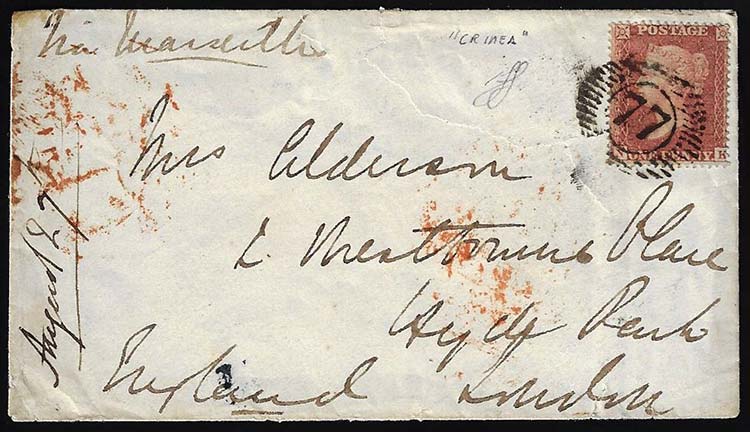 Via Marseille
"CRIMEA"
POSTAGE
77
ONE PENNY K
Mrs Alderson
2 Westbourne Place
Hyde Park
England London
August 27